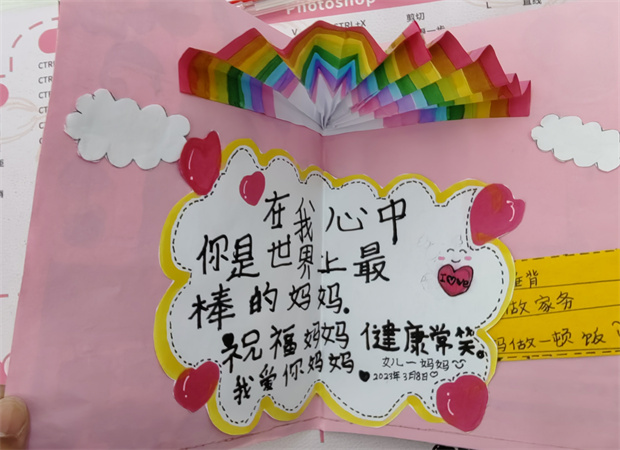 Photoshop
CTRL+X
剪切
直线
在我心中
你是世界上最
棒的妈妈.
祝福妈妈健康常笑。
我爱你妈妈
女儿一妈妈
2023年3月8日
I love
背
做家务
做一顿饭